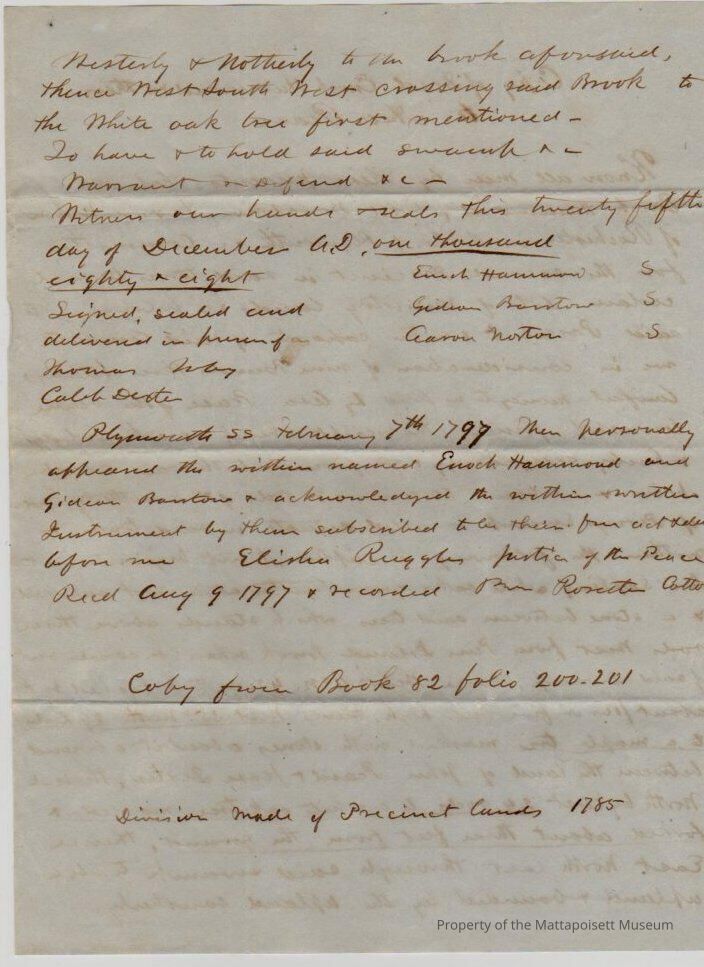 Westerly & Notherly to the brook aforesaid,
thence West South West crossing said Brook to
the White oak tree first mentioned -
To have & to hold said swamp & c -
Warrant & Defend & c -
Witness our hands & seals, this twenty fifth
day of December A.D. one thousand
eighty & eight
Enoch Hammond S
Signed, sealed and
Gideon Barstow S
delivered in presence of
Aaron Norton S
Thomas
Caleb Dexter
Plymouth SS February 7th 1797 Then personally
appeared the within named Enoch Hammond and
Gideon Barstow & acknowledged the within written
Instrument by them subscribed to be their free act & deed
before me Elisha Ruggles Justice of the Peace
Recd Aug 9 1797 & recorded Rosseter Cotton
Coby from Book 82 folio 200-201
Division made of Precinct lands 1785
Property of the Mattapoisett Museum